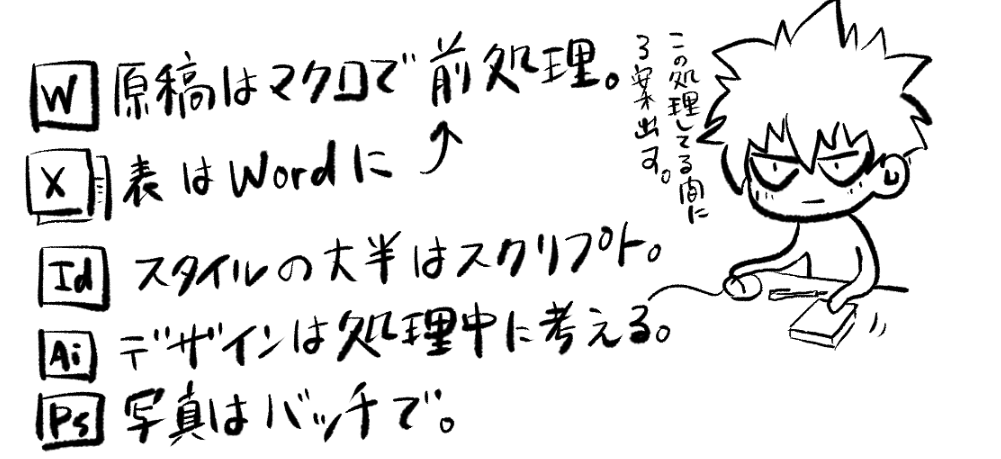 W 原稿はマクロで前処理。
X 表はWordに
Id スタイルの大半はスクリプト。
Ai デザインは処理中に考える。
Ps 写真はバッチで。
この処理してる間に
3案出す。